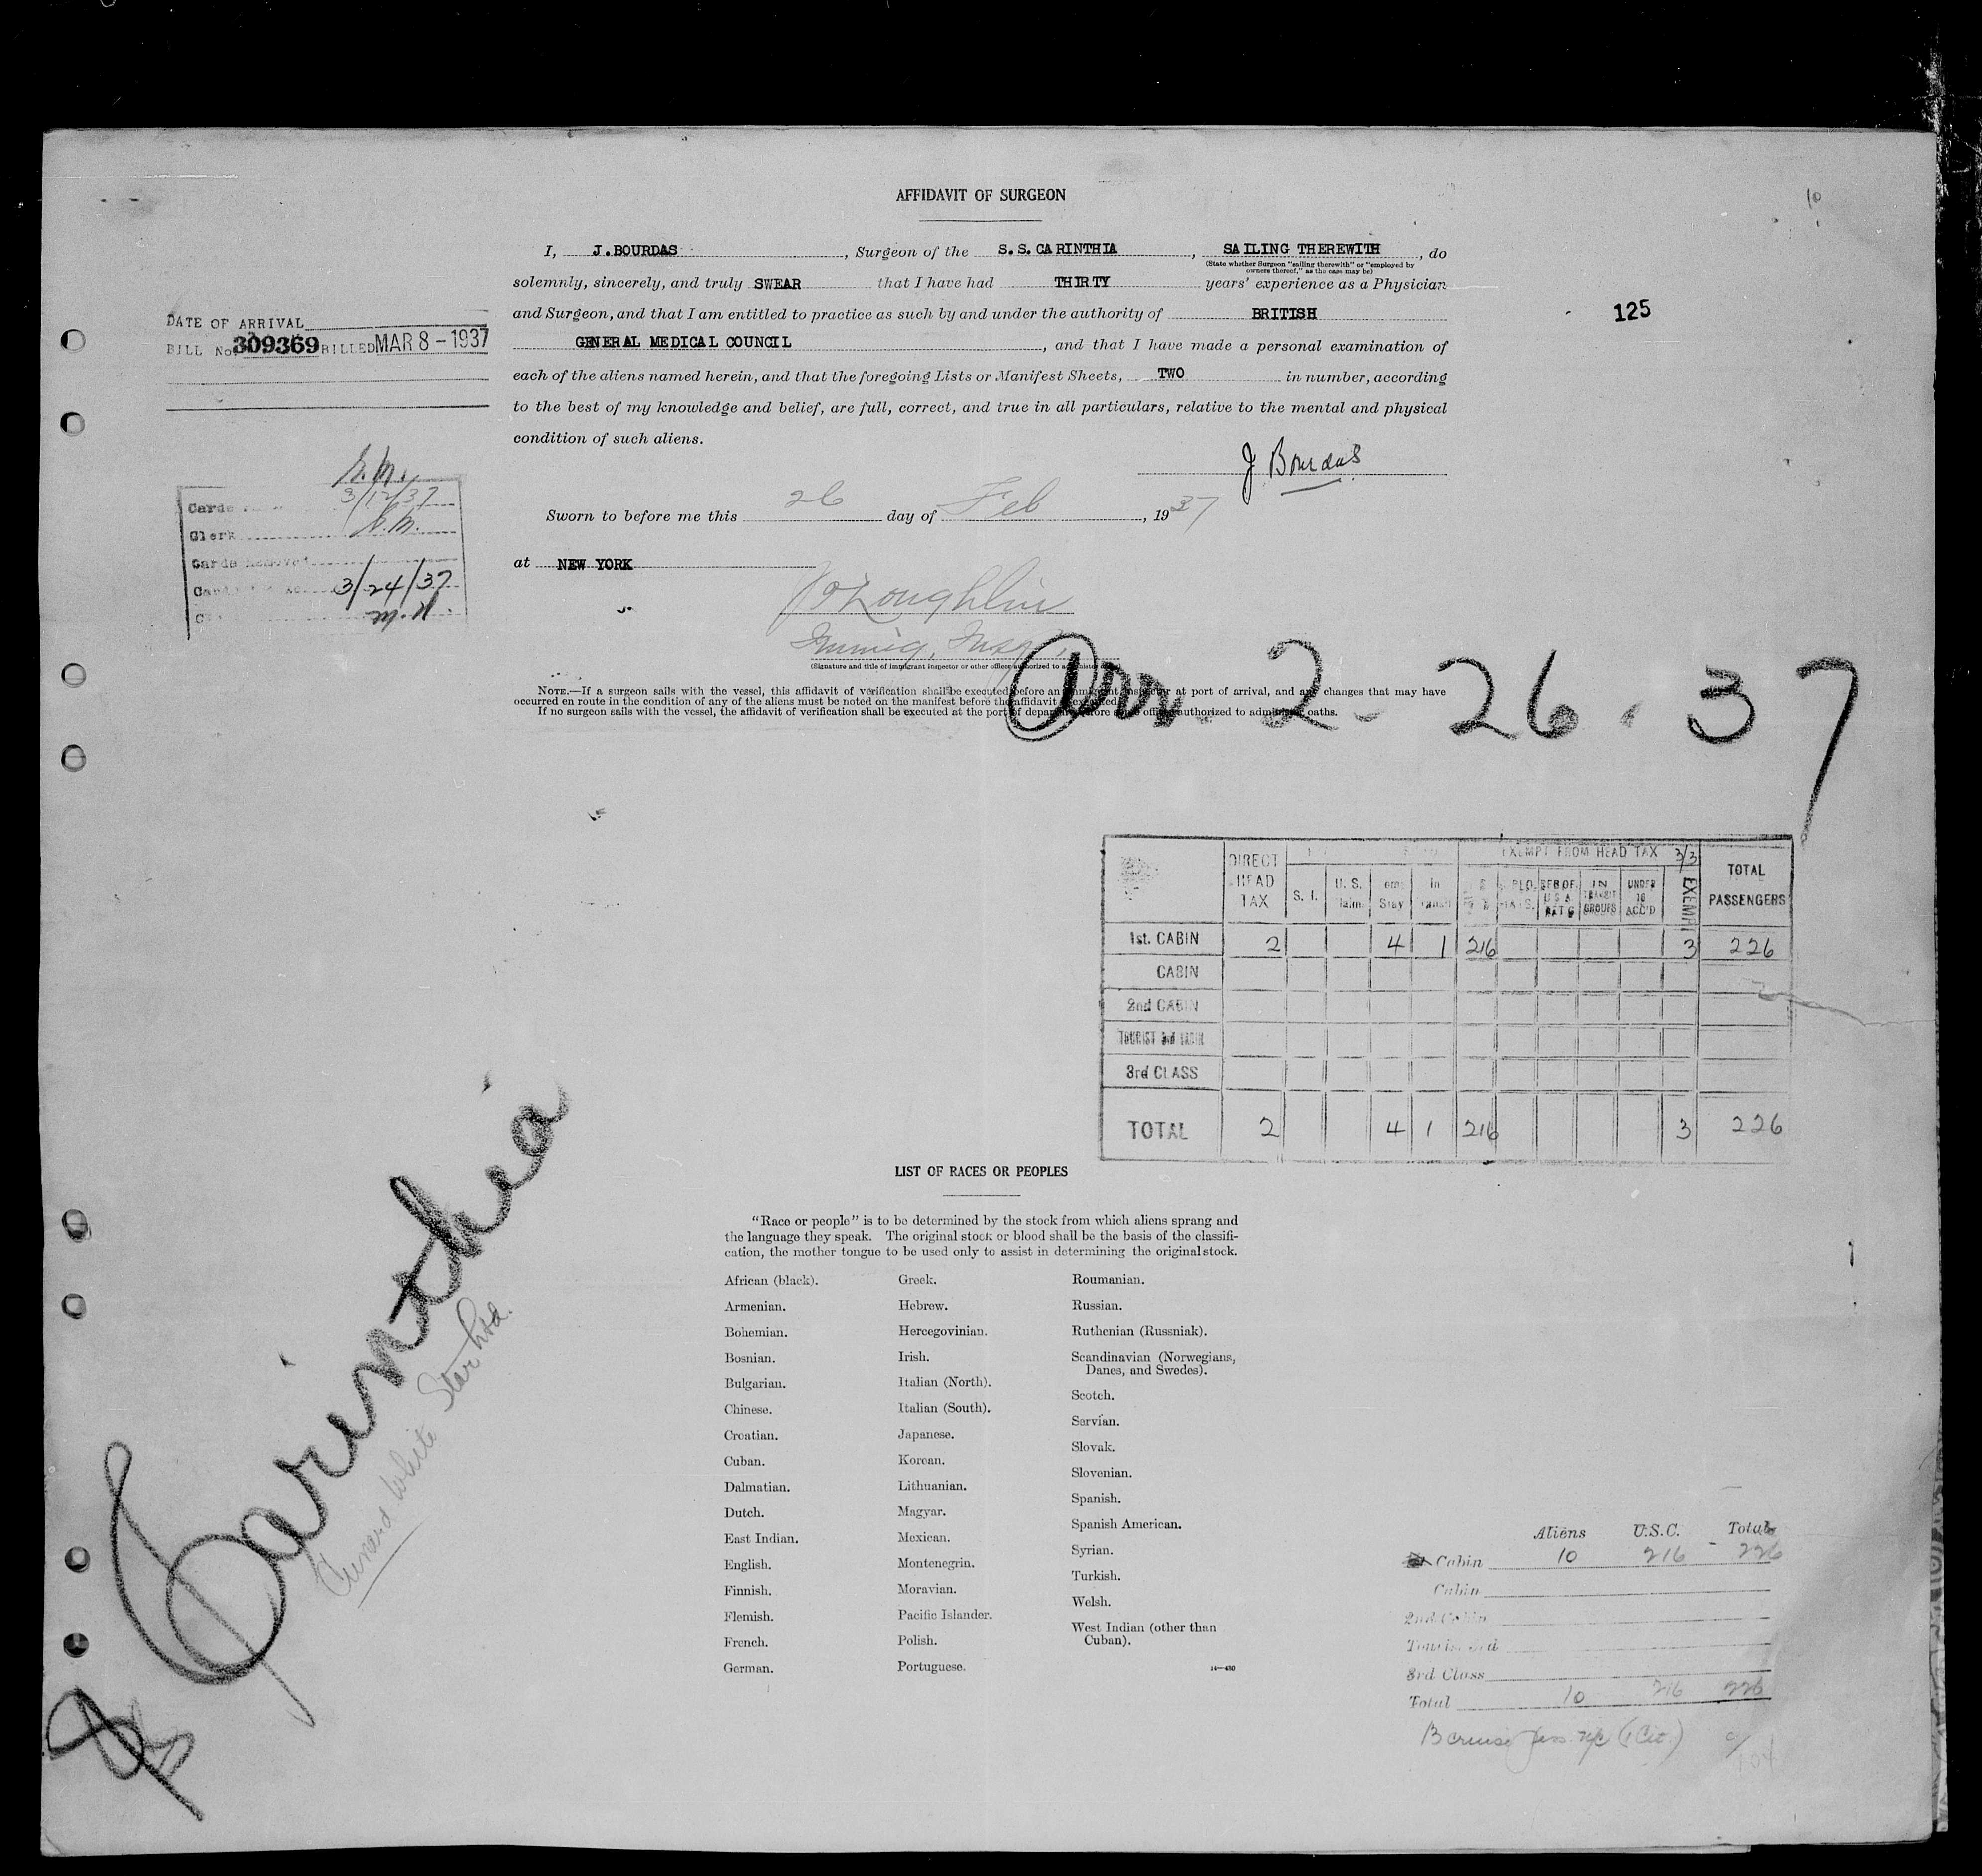 10
AFFIDAVIT OF SURGEON
I, J. BOURDAS, Surgeon of the S.S. CARINTHIA, SAILING THEREWITH, do
(State whether Surgeon "sailing therewith" or "employed by
owners thereof," as the case may be)
solemnly, sincerely, and truly SWEAR that I have had THIRTY years' experience as a Physician
and Surgeon, and that I am entitled to practice as such by and under the authority of BRITISH
GENERAL MEDICAL COUNCIL, and that I have made a personal examination of
each of the aliens named herein, and that the foregoing Lists or Manifest Sheets, TWO in number, according
to the best of my knowledge and belief, are full, correct, and true in all particulars, relative to the mental and physical
condition of such aliens.
J Bourdas
Sworn to before me this 26 day of Feb, 1937
at NEW YORK
O'Loughlin
Immig. Insp.
(Signature and title of immigrant inspector or other officer authorized to
NOTE.—If a surgeon sails with the vessel, this affidavit of verification shall be executed before an immigrant inspector at port of arrival, and any changes that may have
occurred en route in the condition of any of the aliens must be noted on the manifest before the affidavit is executed.
If no surgeon sails with the vessel, the affidavit of verification shall be executed at the port of departure before some officer authorized to administer oaths.
125
DATE OF ARRIVAL
BILL No. 309369 BILLED MAR 8 - 1937
3/12/37
Cards
Clerk
Cards Removed
3/24/37
M.K.
Arr. 2-26-37
DIRECT HEAD TAX
S. I.
U. S.
Stay
In
EXEMPT FROM HEAD TAX
3/3
IN TRANSIT GROUPS
UNDER 16 ACC'D
EXEMPT
TOTAL PASSENGERS
1st. CABIN 2 4 1 216 3 226
CABIN
2nd CABIN
TOURIST 3rd CABIN
3rd CLASS
TOTAL 2 4 1 216 3 226
LIST OF RACES OR PEOPLES
"Race or people" is to be determined by the stock from which aliens sprang and
the language they speak. The original stock or blood shall be the basis of the classifi-
cation, the mother tongue to be used only to assist in determining the original stock.
African (black).
Armenian.
Bohemian.
Bosnian.
Bulgarian.
Chinese.
Croatian.
Cuban.
Dalmatian.
Dutch.
East Indian.
English.
Finnish.
Flemish.
French.
German.
Greek.
Hebrew.
Hercegovinian.
Irish.
Italian (North).
Italian (South).
Japanese.
Korean.
Lithuanian.
Magyar.
Mexican.
Montenegrin.
Moravian.
Pacific Islander.
Polish.
Portuguese.
Roumanian.
Russian.
Ruthenian (Russniak).
Scandinavian (Norwegians,
Danes, and Swedes).
Scotch.
Servian.
Slovak.
Slovenian.
Spanish.
Spanish American.
Syrian.
Turkish.
Welsh.
West Indian (other than
Cuban).
14—480
Carinthia
Cunard White Star Ltd.
Aliens U.S.C. Total
Cabin 10 216 - 226
Cabin
2nd Cabin
Tourist 3rd
3rd Class
Total 10 216 226